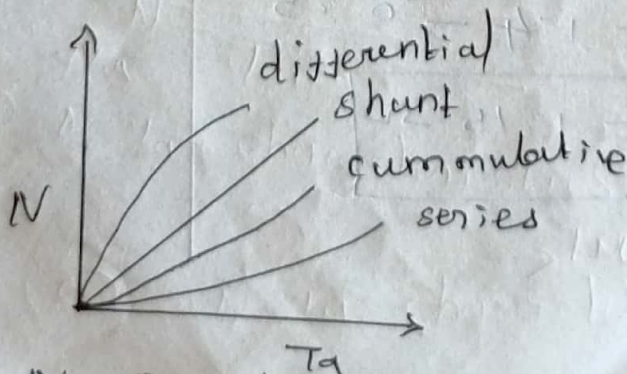 differential
shunt
cummulative
N
series
Ta